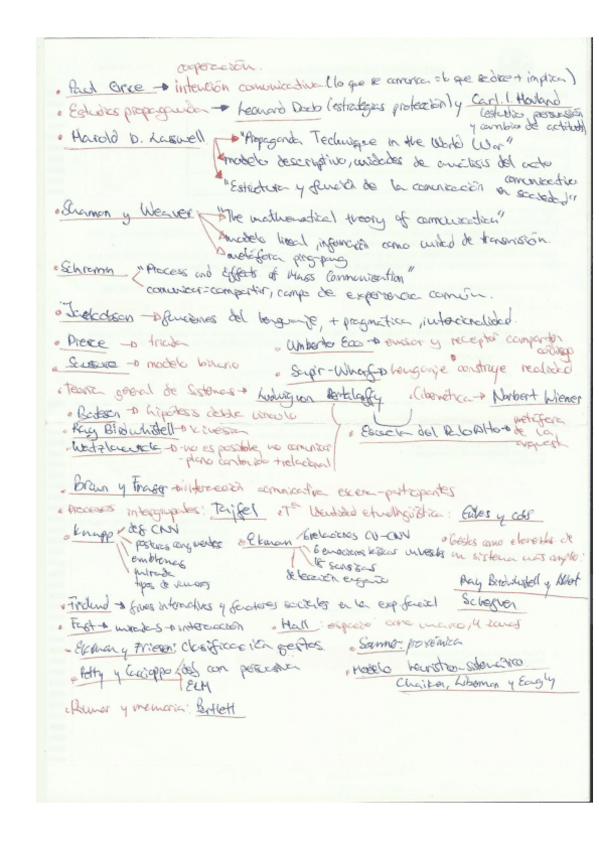 cooperación.
• Paul Grice → intención comunicativa (lo que se comunica = lo que se dice + implica)
• Estudios propaganda → Leonard Doob (estrategias protección) y Carl. I. Hovland (estudio persuasión y cambio de actitud)
• Harold D. Lasswell → "Propaganda Technique in the World War"
→ modelo descriptivo, unidades de análisis del acto comunicativo
→ "Estructura y función de la comunicación en sociedad"
• Shannon y Weaver → "The mathematical theory of communication"
→ modelo lineal, información como unidad de transmisión.
→ metáfora ping-pong
• Schramm "Process and Effects of Mass Communication"
comunicar = compartir, campo de experiencia común.
• Jackobson → funciones del lenguaje, + pragmática, intencionalidad.
• Pierce → triada • Umberto Eco → emisor y receptor comparten código
• Saussure → modelo binario • Sapir-Whorf → lenguaje construye realidad
• Teoría general de Sistemas → Ludwig von Bertalanffy • Cibernética → Norbert Wiener
• Bateson → hipótesis doble vínculo
• Ray Birdwhistell → kinesia • Escuela del Palo Alto → metáfora de la orquesta
• Watzlawick → no es posible no comunicar
- plano contenido + relacional
• Brown y Fraser → interacción comunicativa escena-participantes
• procesos intergrupales: Tajfel • Tª Identidad etnolingüística: Giles y cols
• Knapp def CNV • Ekman 6 relaciones CV-CNV • Gestos como elementos de un sistema más amplio:
posturas congruentes
emblemas
mirada 18 sonrisas
tipos de
detección engaño Ray Birdwhistell y Albert Scheflen
• Fridlund → fines internativos y factores sociales en la exp. facial
• Fast → miradas → interacción • Hall: espacio como marco, 4 zonas
- Ekman y Friesen: Clasificación gestos. • Sommer: proxémica
• Petty y Cacioppo con persuasiva • Modelo heurístico-sistemático
ELM Chaiken, Liberman y Eagly
• Rumor y memoria: Bartlett